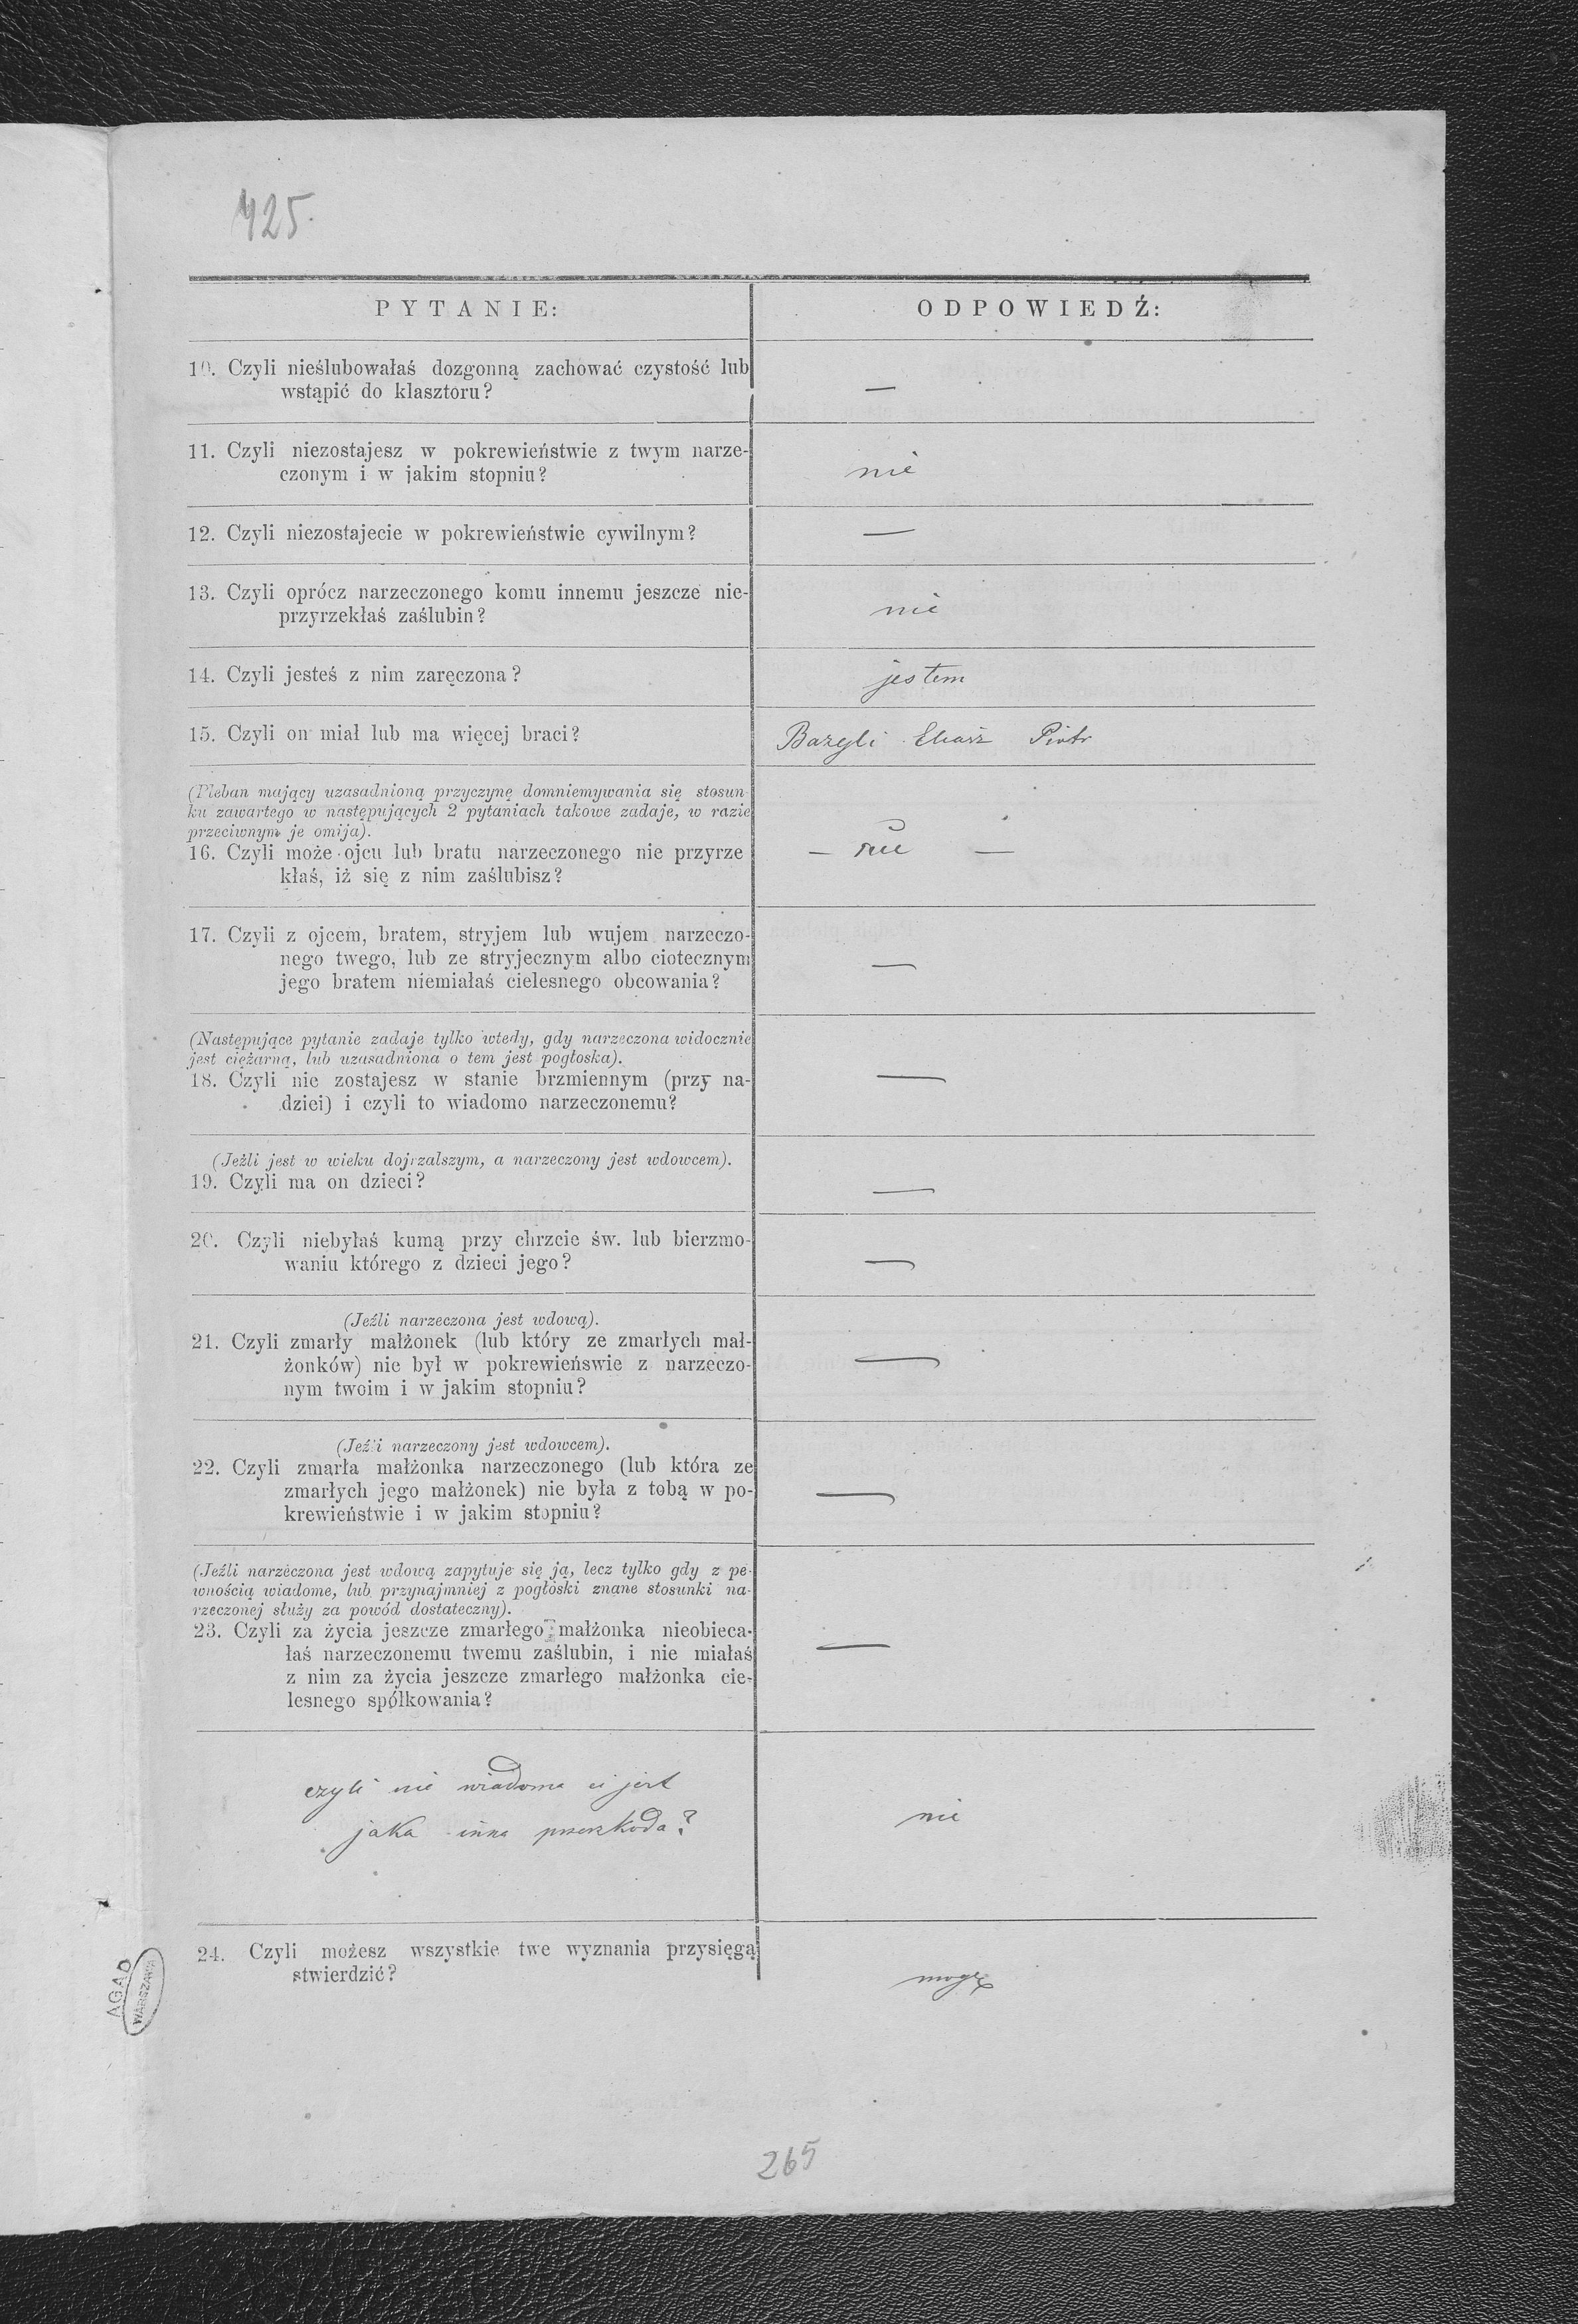 425.
PYTANIE:
ODPOWIEDŹ:
10. Czyli nieślubowałaś dozgonną zachować czystość lub
wstąpić do klasztoru?
—
11. Czyli niezostajesz w pokrewieństwie z twym narze-
czonym i w jakim stopniu?
nie
12. Czyli niezostajecie w pokrewieństwie cywilnym?
—
13. Czyli oprócz narzeczonego komu innemu jeszcze nie-
przyrzekłaś zaślubin?
nie
14. Czyli jesteś z nim zaręczona?
jestem
15. Czyli on miał lub ma więcej braci?
Bazyli Eliasz Piotr
(Pleban mający uzasadnioną przyczynę domniemywania się stosun-
ku zawartego w następujących 2 pytaniach takowe zadaje, w razie
przeciwnym je omija).
16. Czyli może ojcu lub bratu narzeczonego nie przyrze
kłaś, iż się z nim zaślubisz?
— nie —
17. Czyli z ojcem, bratem, stryjem lub wujem narzeczo-
nego twego, lub ze stryjecznym albo ciotecznym
jego bratem niemiałaś cielesnego obcowania?
—
(Następujące pytanie zadaje tylko wtedy, gdy narzeczona widocznie
jest ciężarną, lub uzasadniona o tem jest pogłoska).
18. Czyli nie zostajesz w stanie brzmiennym (przy na-
dziei) i czyli to wiadomo narzeczonemu?
—
(Jeżli jest w wieku dojrzalszym, a narzeczony jest wdowcem).
19. Czyli ma on dzieci?
—
20. Czyli niebyłaś kumą przy chrzcie św. lub bierzmo-
waniu którego z dzieci jego?
—
(Jeźli narzeczona jest wdową).
21. Czyli zmarły małżonek (lub który ze zmarłych mał-
żonków) nie był w pokrewieńswie z narzeczo-
nym twoim i w jakim stopniu?
—
(Jeźli narzeczony jest wdowcem).
22. Czyli zmarła małżonka narzeczonego (lub która ze
zmarłych jego małżonek) nie była z tobą w po-
krewieństwie i w jakim stopniu?
—
(Jeźli narzeczona jest wdową zapytuje się ją, lecz tylko gdy z pe-
wnością wiadome, lub przynajmniej z pogłoski znane stosunki na-
rzeczonej służy za powód dostateczny).
23. Czyli za życia jeszcze zmarłego małżonka nieobieca-
łaś narzeczonemu twemu zaślubin, i nie miałaś
z nim za życia jeszcze zmarłego małżonka cie-
lesnego spółkowania?
—
czyli nie wiadoma ci jest
jaka inna przeszkoda?
nie
24. Czyli możesz wszystkie twe wyznania przysięgą
stwierdzić?
mogę
AGAD
WARSZAWA
265